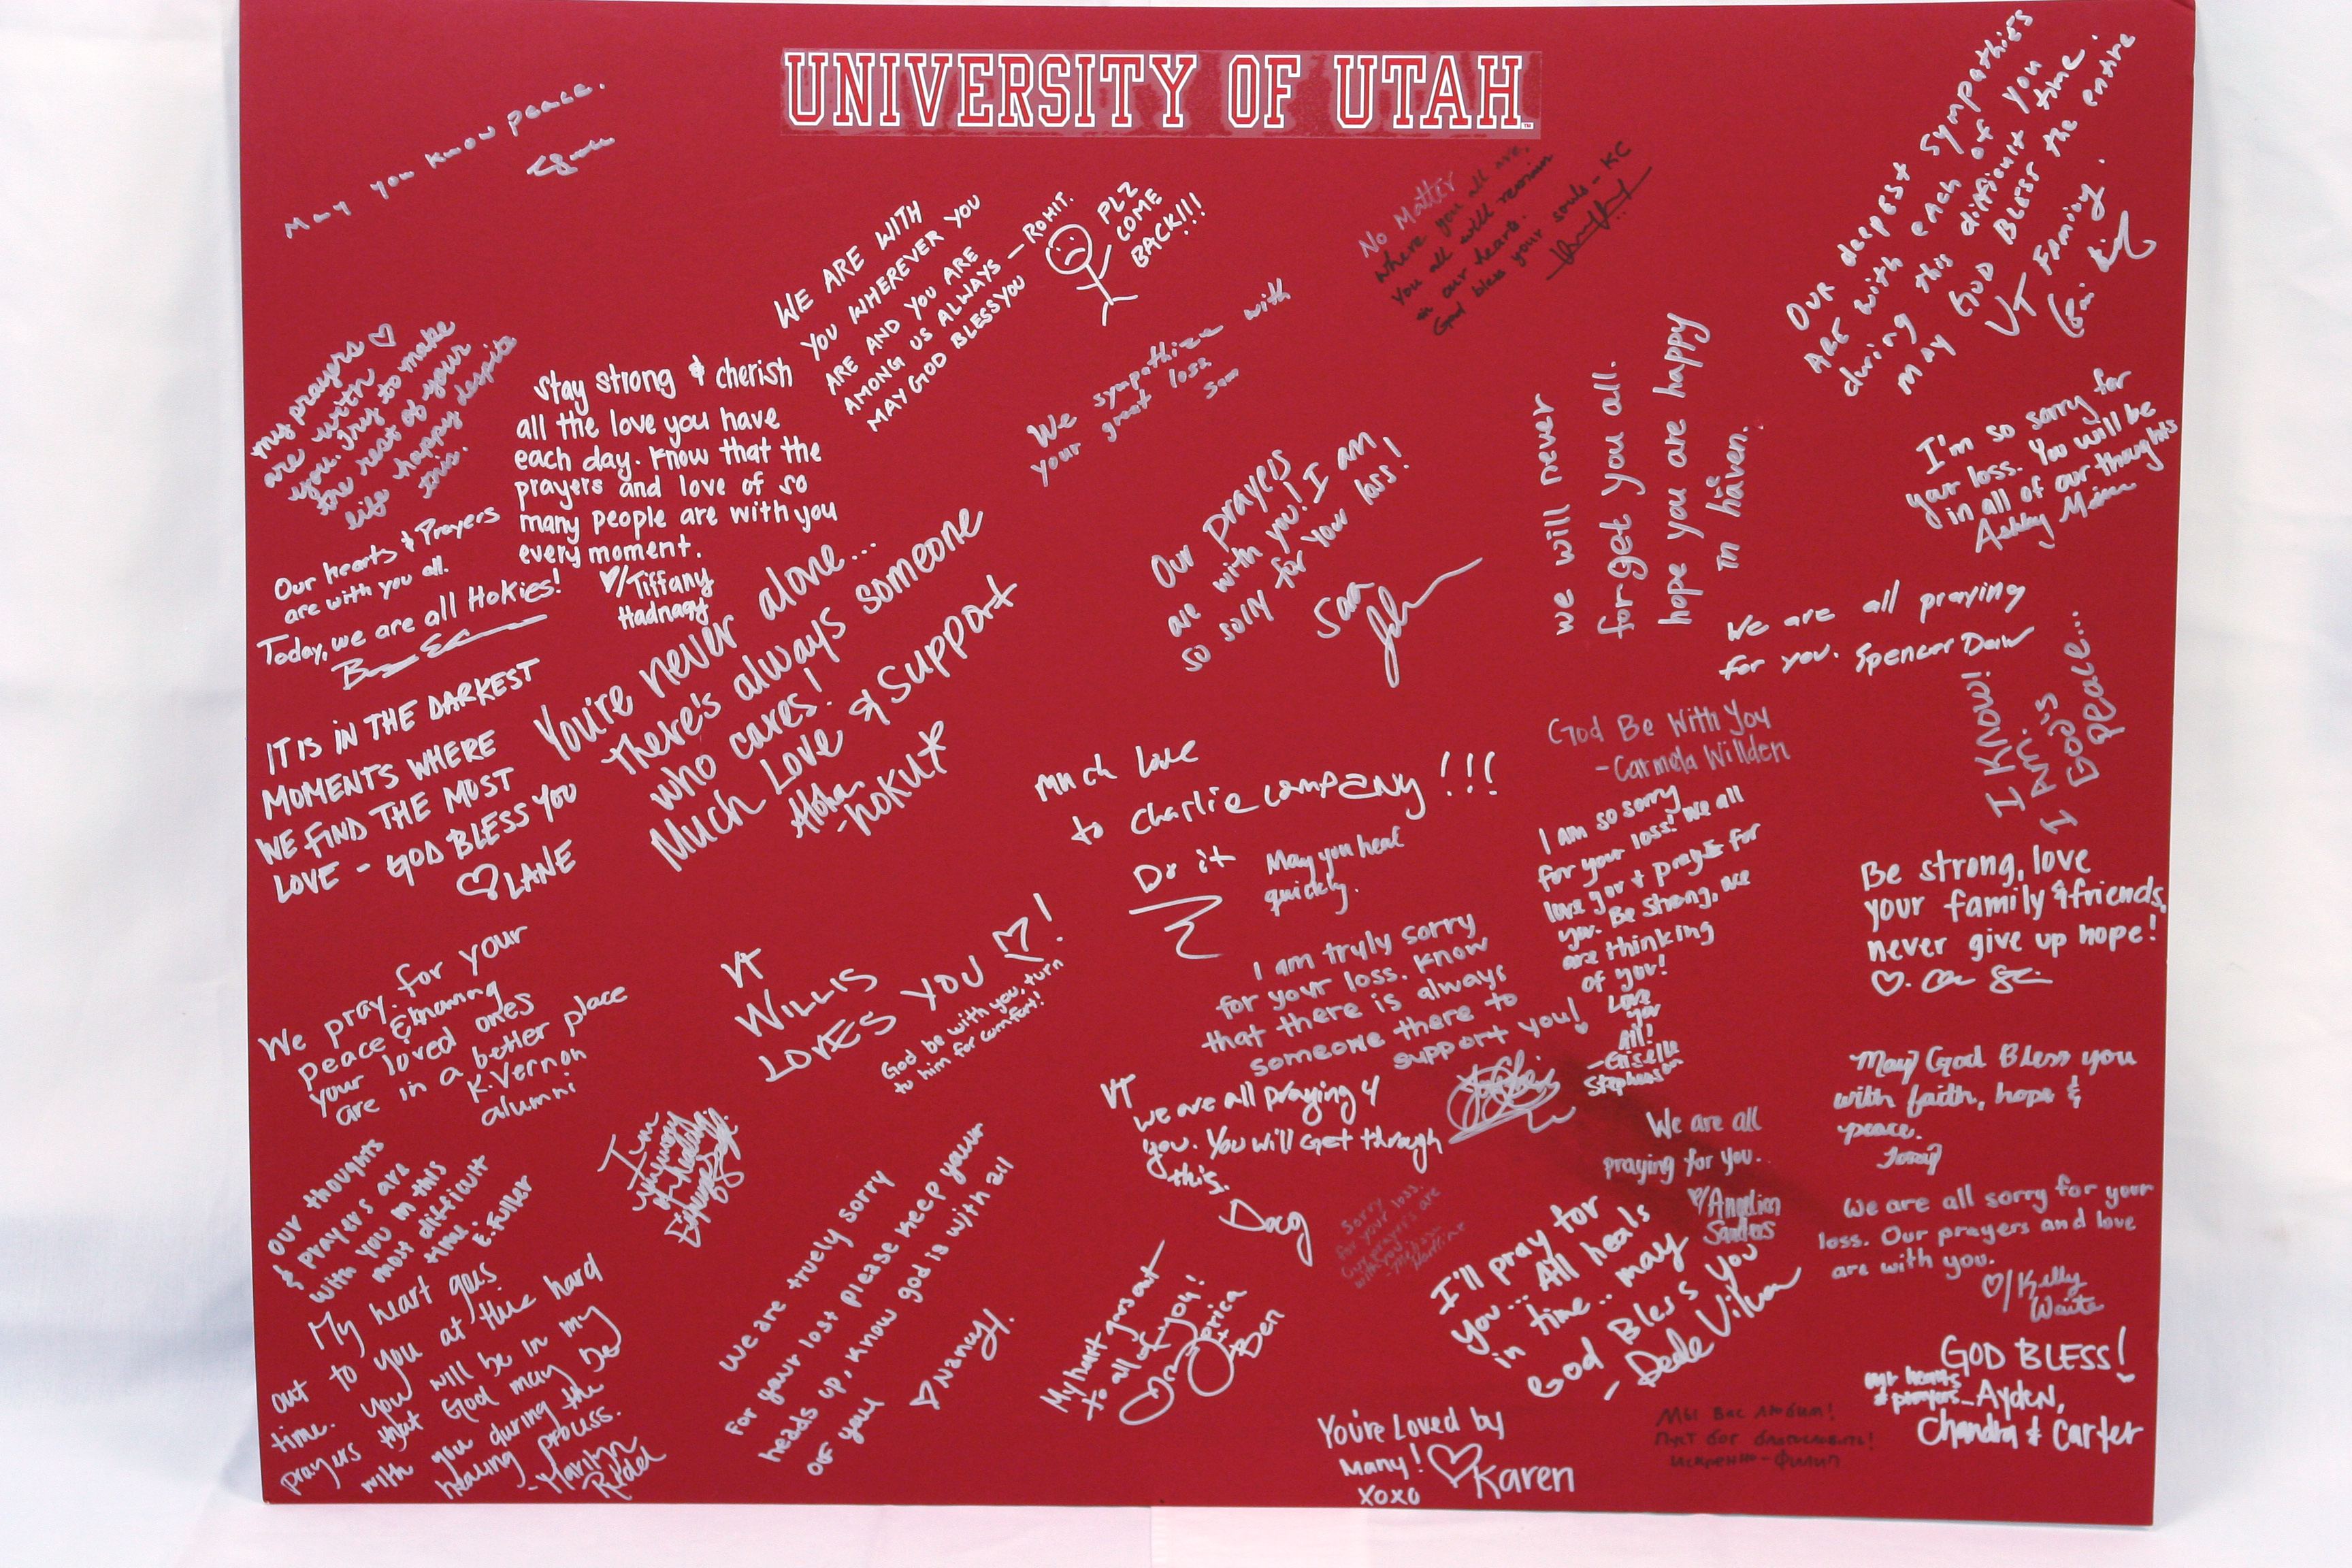 UNIVERSITY OF UTAH
May you know peace.
WE ARE WITH
YOU WHEREVER YOU
ARE AND YOU ARE
AMONG US ALWAYS — ROHIT.
MAY GOD BLESS YOU
PLZ
COME
BACK!!!
No Matter
where you all are,
you all will remain
in our hearts.
God bless your souls - KC
Our deepest sympathies
ARE with each of you
during this difficult time.
May God Bless the entire
VT Family.
my prayers ♡
are with
you. Try to make
the rest of your
life happy despite
this.
Stay strong & cherish
all the love you have
each day. Know that the
prayers and love of so
many people are with you
every moment.
♡/Tiffany
Hadnagy
We sympathize with
your great loss
Sam
Our prayers
are with you! I am
so sorry for your loss!
Sara
we will never
forget you all.
hope you are happy
in haven.
I'm so sorry for
your loss. You will be
in all of our thoughts
Ashley
Our hearts & Prayers
are with you all.
Today, we are all Hokies!
You're never alone...
There's always someone
who cares!
Much Love & Support
Aloha
-HOKU*
We are all praying
for you. Spencer
IT IS IN THE DARKEST
MOMENTS WHERE
WE FIND THE MOST
LOVE - GOD BLESS YOU
♡ LANE
I KNOW!
I Am.'s
God's
peace...
God Be With You
-Carmela Willden
Much Love
to Charlie company!!!
Do it
May you heal
quickly.
I am so sorry
for your loss! We all
love you & pray for
you. Be strong, we
are thinking
of you!
Love
you
All!
-Giselle
Stephenson
Be strong, love
your family & friends,
never give up hope!
♡.
We pray for your
peace & knowing
your loved ones
are in a better place
K. Vernon
alumni
VT
WILLIS
LOVES YOU ♡!
God be with you, turn
to him for comfort!
I am truly sorry
for your loss. Know
that there is always
someone there to
support you!
May God Bless you
with faith, hope &
peace.
VT
we are all praying 4
you. You will get through
this.
Doug
We are all
praying for you..
♡/Angelien
Santos
our thoughts
& prayers are
with you in this
most difficult
time. E. Fuller
I'm
Sorry
for your loss.
Our prayers are
with you
We are all sorry for your
loss. Our prayers and love
are with you.
♡/Kelly
Waite
My heart goes
out to you at this hard
time. You will be in my
prayers that God may be
with you during the
healing process.
-Marilyn
Riddel
we are truely sorry
for your lost please keep your
heads up, Know god is with all
of you
♡ Nancy J.
My heart goes out
to all of you!
Ben
I'll pray for
you... All heals
in time.. may
God Bless you
- Dede
GOD BLESS!
our hearts
& prayers - Ayden,
Chandra & Carter
You're Loved by
Many! ♡ Karen
XOXO
Мы вас любим!
Пуст бог благословить!
Искренно - Филип